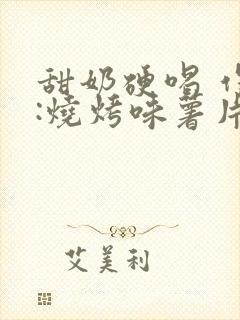 甜奶硬唱
:燒烤味薯片
艾美利